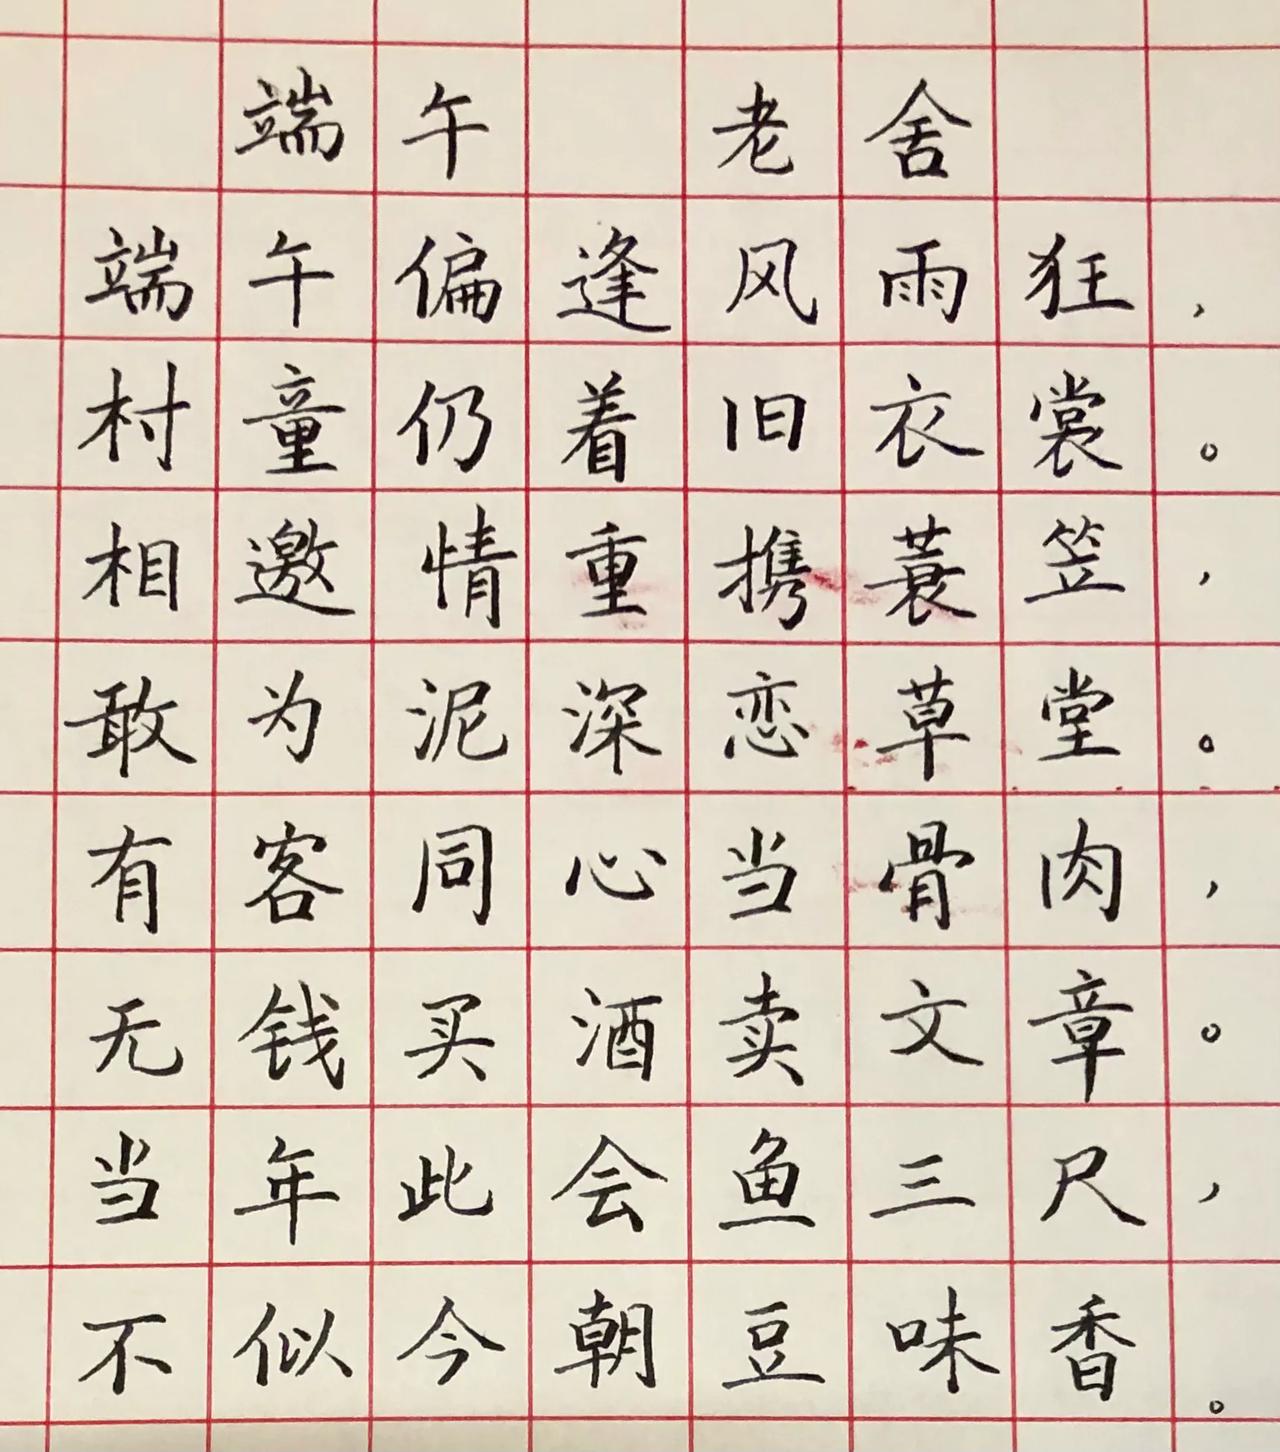 端午 老舍
端午偏逢风雨狂，
村童仍着旧衣裳。
相邀情重携蓑笠，
敢为泥深恋草堂。
有客同心当骨肉，
无钱买酒卖文章。
当年此会鱼三尺，
不似今朝豆味香。